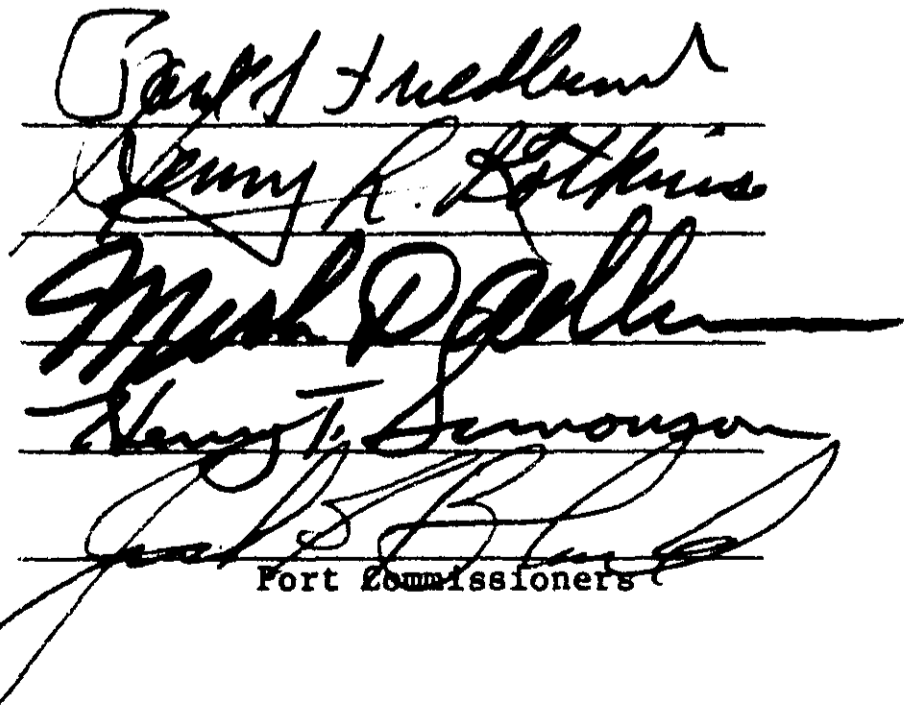 Paul S Friedlund
Henry R. Kotkins
Merle D Adlum
Henry T. Simonson
Jack S Block
Port Commissioners